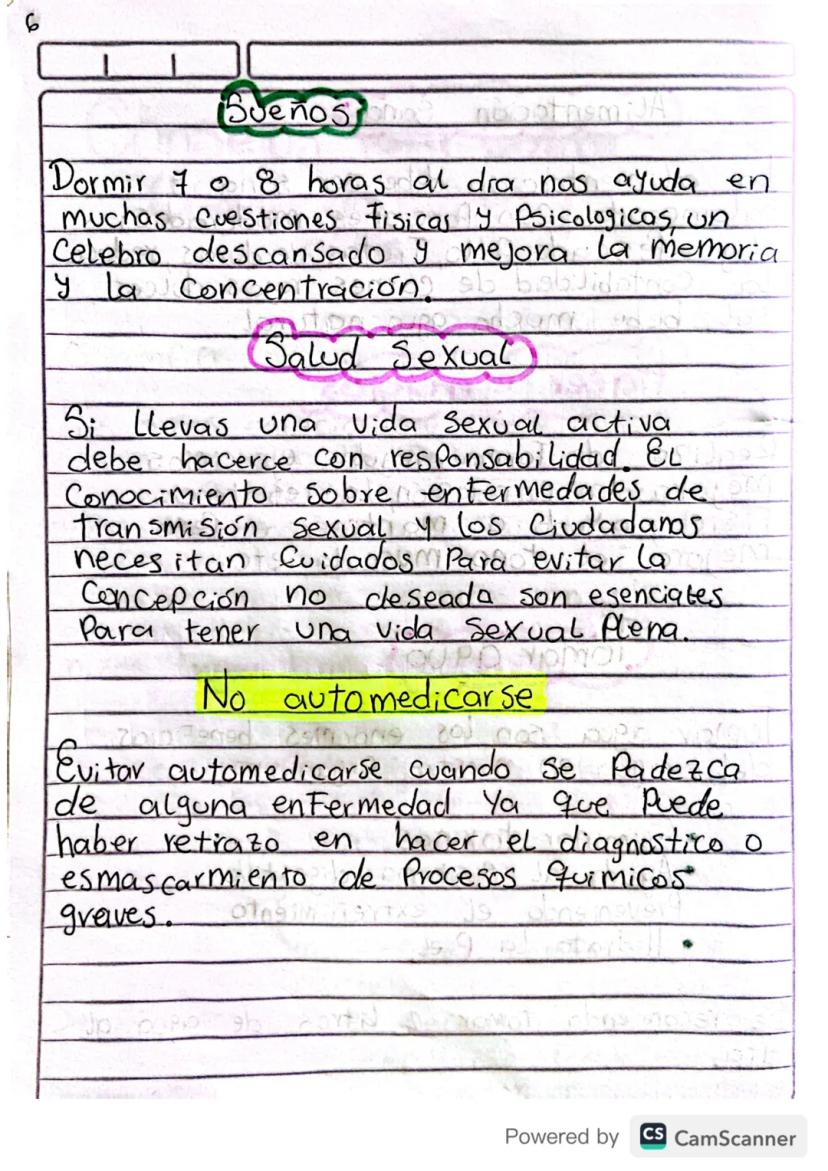 6
Sueños
Dormir 7 o 8 horas al dia nos ayuda en
muchas cuestiones Fisicas y Psicologicas, un
celebro descansado y mejora la memoria
y la concentración.
Salud Sexual
Si llevas una vida sexual activa
debe hacerce con responsabilidad. El
conocimiento sobre enfermedades de
transmisión sexual y los ciudadanos
necesitan cuidados para evitar la
concepción no deseada son esenciales
para tener una vida sexual plena.
No automedicarse
Evitar automedicarse cuando se Padezca
de alguna enfermedad ya que puede
haber retrazo en hacer el diagnostico o
esmascarmiento de Procesos quimicos
graves.
Powered by CS CamScanner